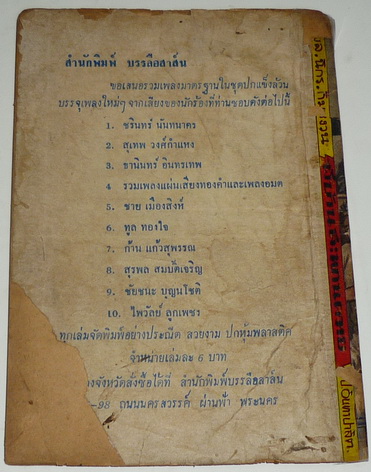 สำนักพิมพ์ บรรลือสาส์น
ขอเสนอรวมเพลงมาตรฐานในชุดปกแข็งล้วน
บรรจุเพลงใหม่ๆ จากเสียงของนักร้องที่ท่านชอบดังต่อไปนี้
1. ชรินทร์ นันทนาคร
2. สุเทพ วงศ์กำแหง
3. ชานินทร์ อินทรเทพ
4 รวมเพลงแผ่นเสียงทองคำและเพลงอมต
5. ชาย เมืองสิงห์
6. ทูล ทองใจ
7. ก้าน แก้วสุพรรณ
8. สุรพล สมบัติเจริญ
9. ชัยชนะ บุญนโชติ
10. ไพรวัลย์ ลูกเพชร
ทุกเล่มจัดพิมพ์อย่างประณีต สวยงาม ปกหุ้มพลาสติค
จำหน่ายเล่มละ 6 บาท
งจังหวัดสั่งซื้อได้ที่ สำนักพิมพ์บรรลือสาส์น
-98 ถนนนครสวรรค์ ผ่านฟ้า พระนคร